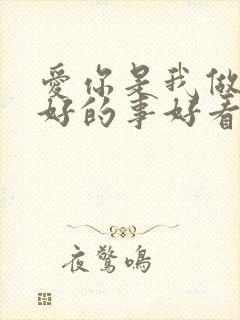 爱你是我做
好的事好看
夜驚鳴